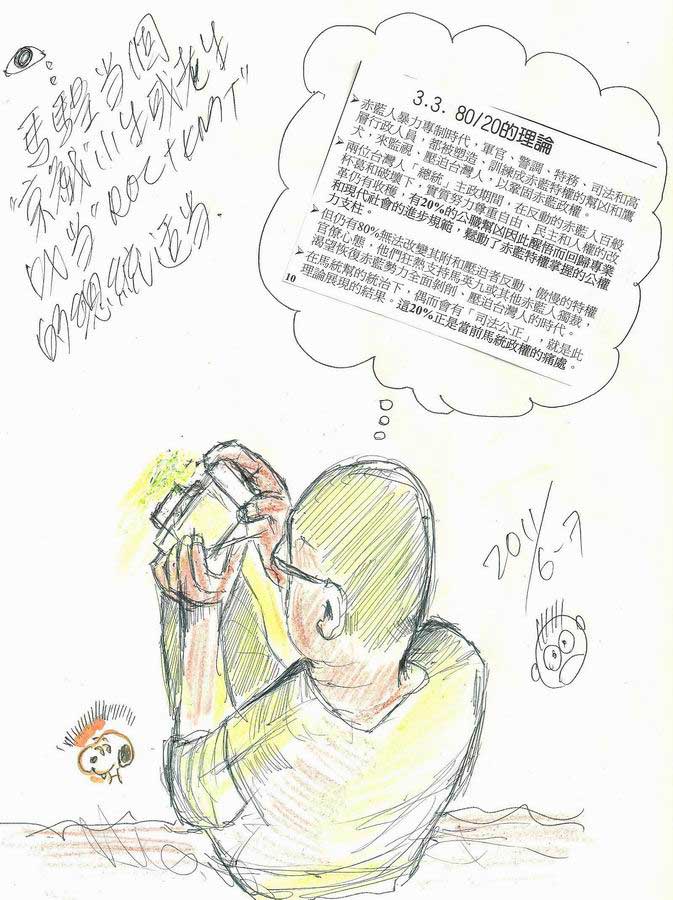 馬騜当個
"京戲"小生或老生
以当"ROC+KMT"
的總統適当.
3.3. 80/20的理論
➢赤藍人暴力專制時代，軍官、警調、特務、司法和高
層行政人員，都被塑造、訓練成赤藍特權的幫凶和鷹
犬，來監視、壓迫台灣人，以鞏固赤藍政權。
➢兩位台灣人「總統」主政期間，在反動的赤藍人百般
杯葛和破壞下，實質努力尊重自由、民主和人權的改
革仍有收穫，有20%的公職幫凶因此醒悟而回歸專業
和現代社會的進步規範，鬆動了赤藍特權掌握的公權
力支柱。
➢但仍有80%無法改變其附和壓迫者反動、傲慢的特權
官僚心態，他們狂熱支持馬英九或其他赤藍人獨裁，
渴望恢復赤藍勢力全面剝削、壓迫台灣人的時代。
➢在馬統幫的統治下，偶而會有「司法公正」，就是此
理論展現的結果。這20%正是當前馬統政權的痛處。
10
2011/6-7